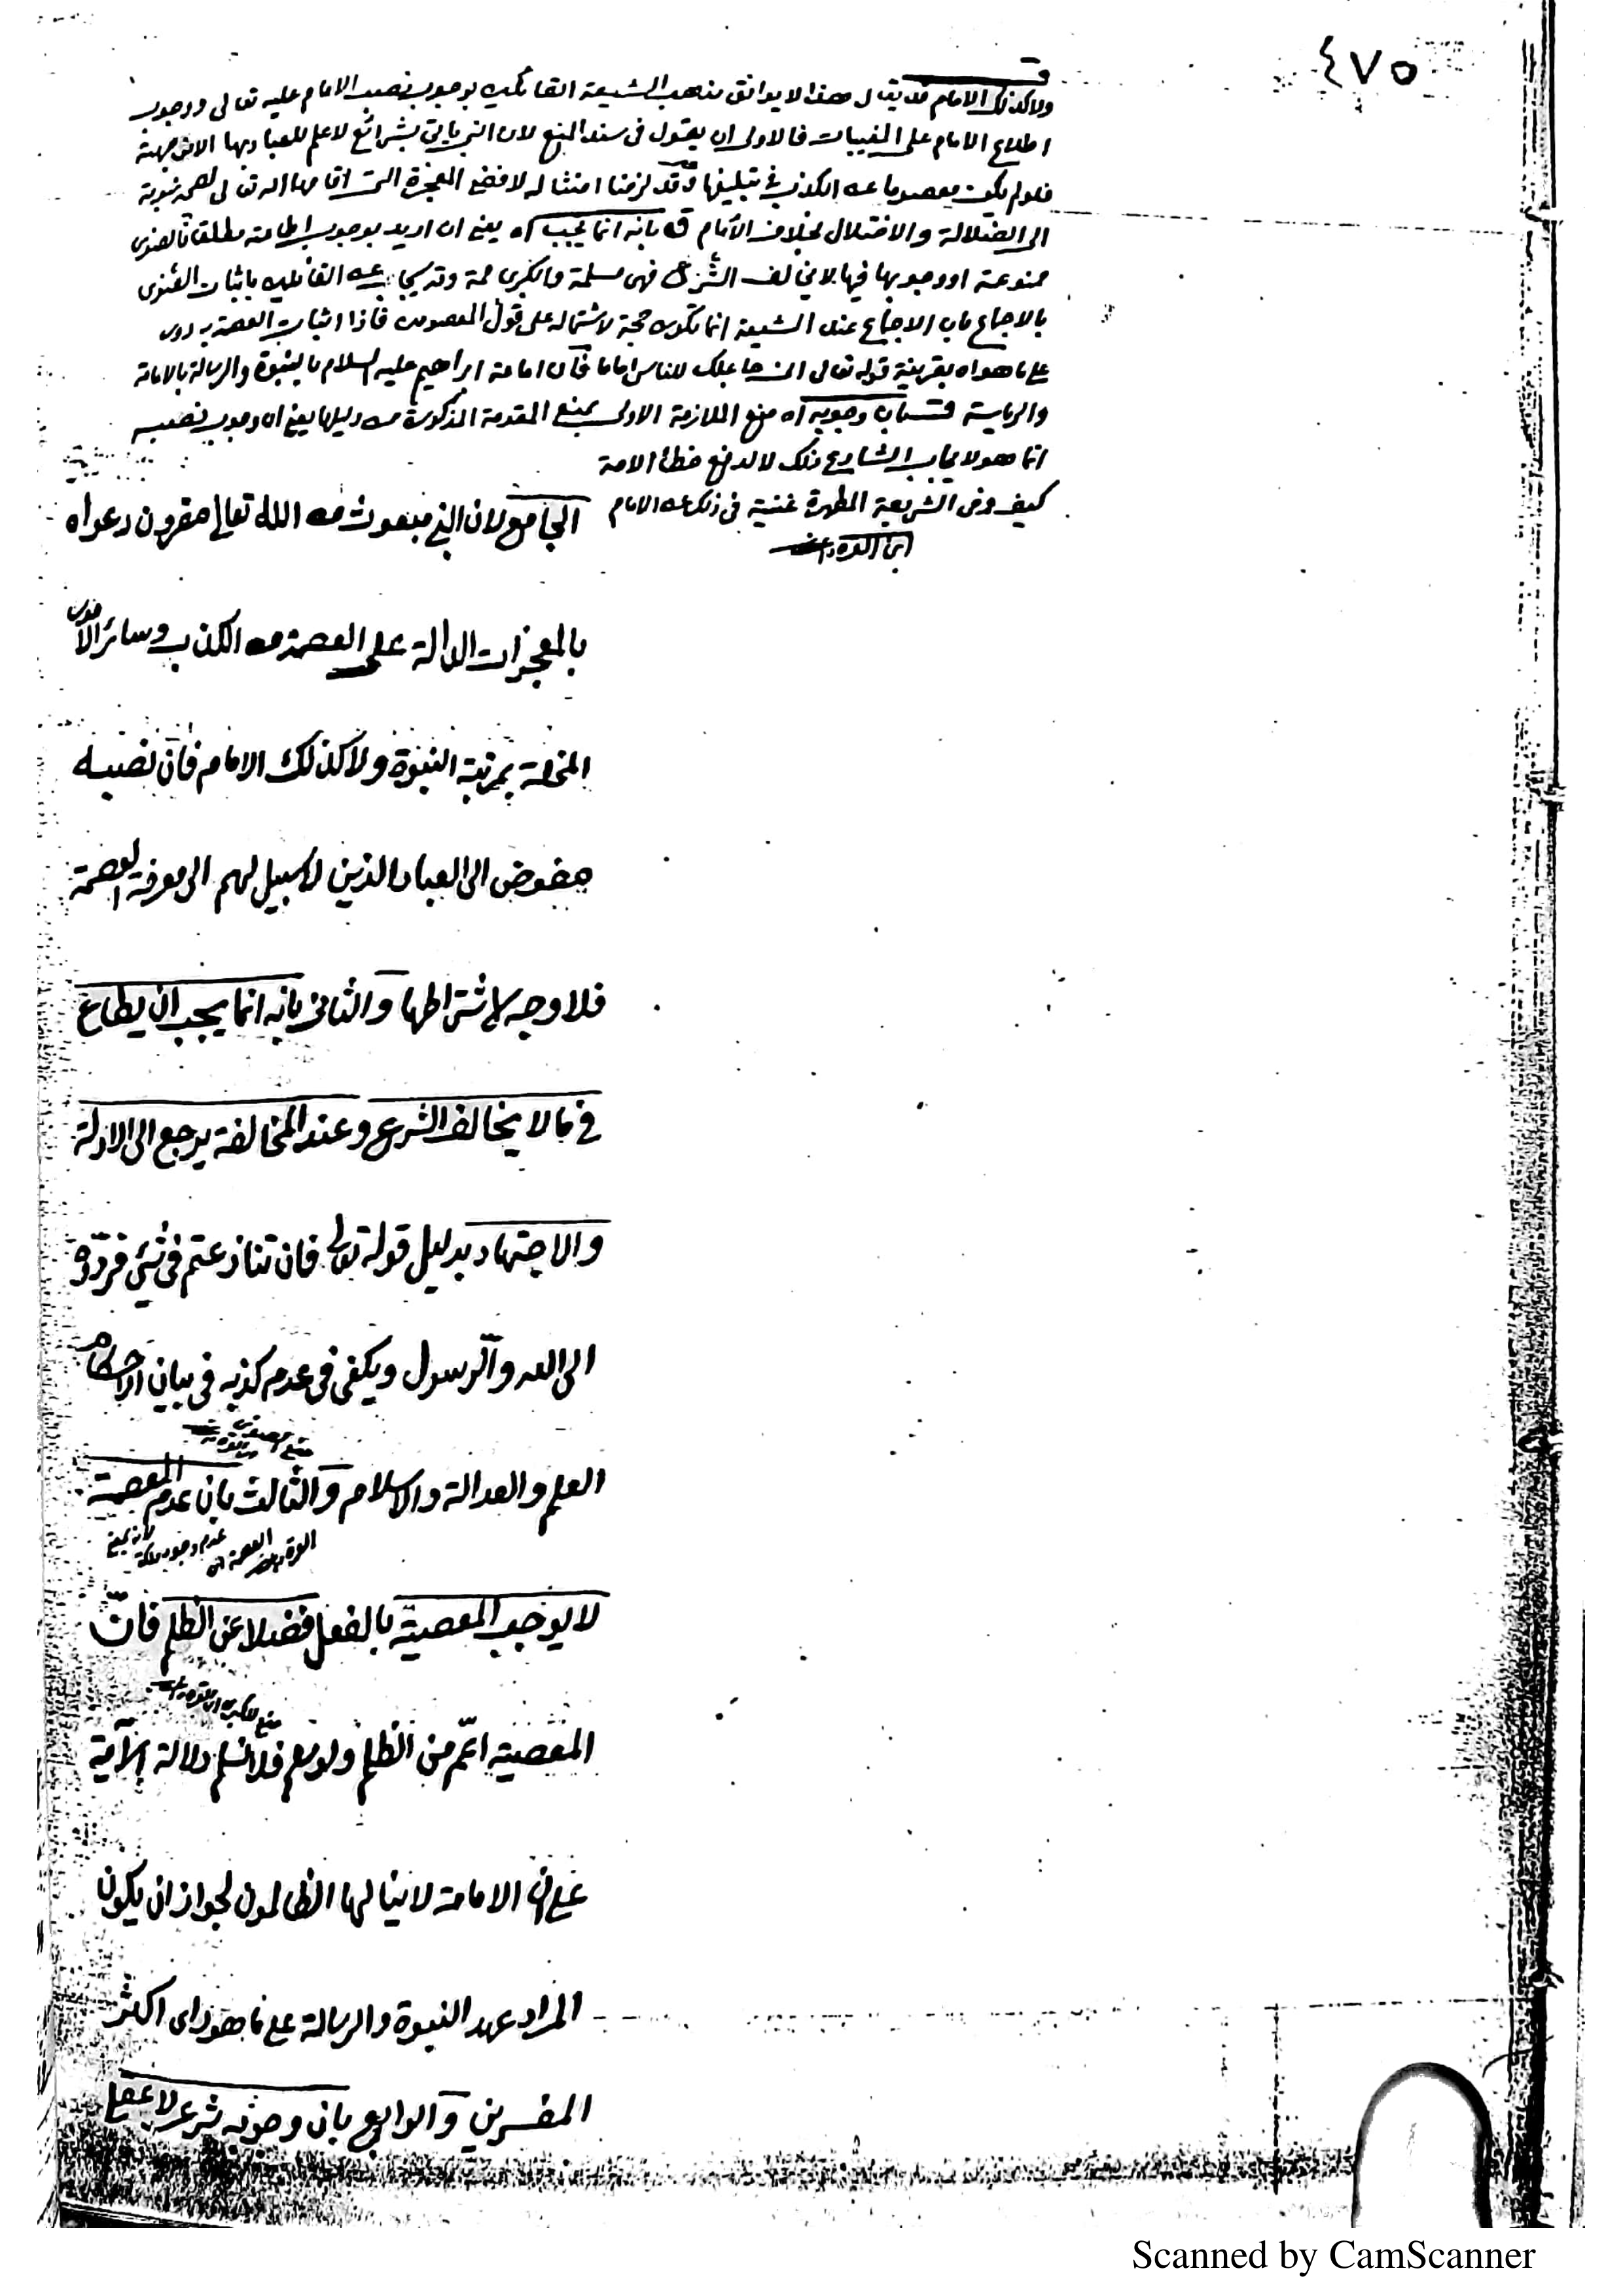 ٤٧٥
ولا كذلك الامام قد يقال هذا لا يوافق مذهب الشيعة القائلين بوجوب نصب الامام عليه تعالى ووجوب
اطلاع الامام على المغيبات فالاولى ان يقول فى سند المنع لان النبي ياتى بشرائع لا علم للعباد بها الا من جهته
فلو لم يكن معصوما عن الكذب في تبليغها وقد لزمنا امتثاله لافضى المعجزة التى اقامها الله تعالى
الى الضلالة والاختلال بخلاف الامام قه بانه انما يجب اه يعنى ان اريد بوجوب اطاعته مطلقا فالصغرى
ممنوعة او وجوبها فيما لا يخالف الشرع فهى مسلمة والكبرى وقد يجاب عن القائلين باثبات
بالاجماع بان الاجماع عند الشيعة انما تكون حجة لاشتماله على قول المعصوم فاذا اثبات العصمة به دور
على ما هو اه بقرينة قوله تعالى انى جاعلك للناس اماما فان امامة ابراهيم عليه السلام بالنبوة والرسالة بالامامة
والرياسة بان وجوبه اه منع الملازمة الاولى بمنع المقدمة المذكورة من دليلها يعنى ان وجوب نصبه
انما هو لايجاب الشارع ذلك لا لدفع خطأ الامة
كيف وفى الشريعة المطهرة غنية فى ذلك عن الامام
ابن القره داغى
الجامع لان النبي مبعوث من الله تعالى مقرون دعواه
بالمعجزات الدالة على العصمة من الكذب وسائر الامور
المخلة بمرتبة النبوة ولا كذلك الامام فان نصبه
مفوض الى العباد الذين لا سبيل لهم الى معرفة العصمة
فلا وجه لاشتراطها والثانى بانه انما يجب ان يطاع
في ما لا يخالف الشرع وعند المخالفة يرجع الى الادلة
والاجتهاد بدليل قوله تعالى فان تنازعتم فى شئ فردوه
الى الله والرسول ويكفى فى عدم كذبه فى بيان الاحكام
منع الصغرى
العلم والعدالة والاسلام والثالث بان عدم العصمة
لا يوجب المعصية بالفعل فضلا عن الظلم فان
منع الكبرى
المعصية اعم من الظلم ولو سلم فلا نسلم دلالة الآية
على ان الامامة لا ينالها الظالمون لجواز ان يكون
المراد عهد النبوة والرسالة على ما هو راى اكثر
المفسرين والرابع بان وجوبه شرعى لا عقلى
Scanned by CamScanner